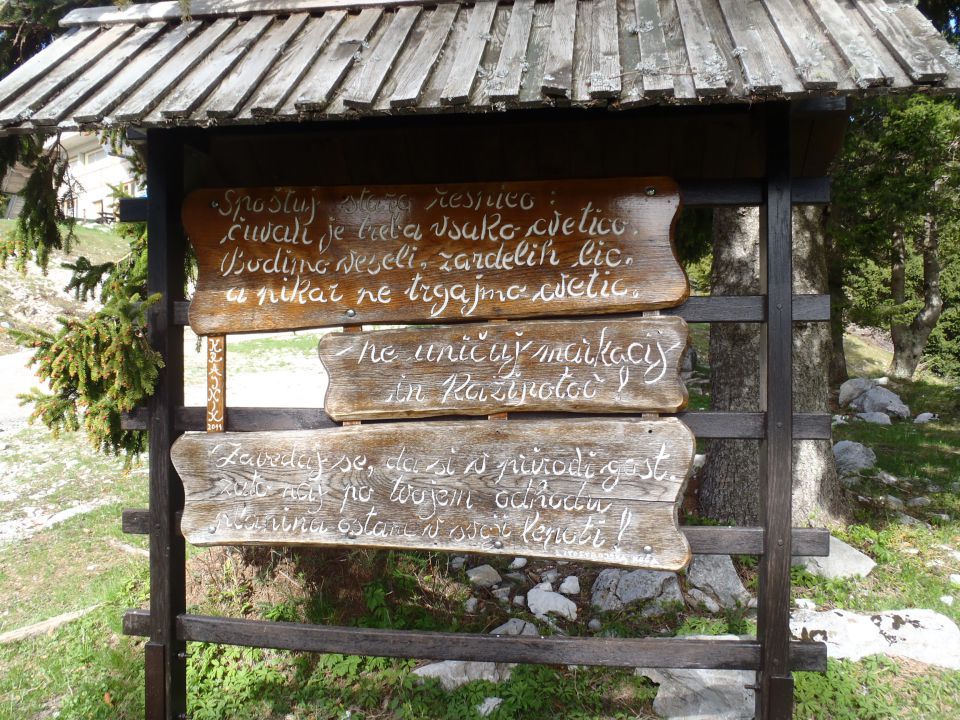 Spoštuj staro resnico:
čuvati je treba vsako cvetico.
Bodimo veseli, zardelih lic,
a nikar ne trgajmo cvetic.
Ne uničuj markacij
in kažipotov!
Zavedaj se, da si v prirodi gost,
zato naj po tvojem odhodu
planina ostane v svoji lepoti!
2011